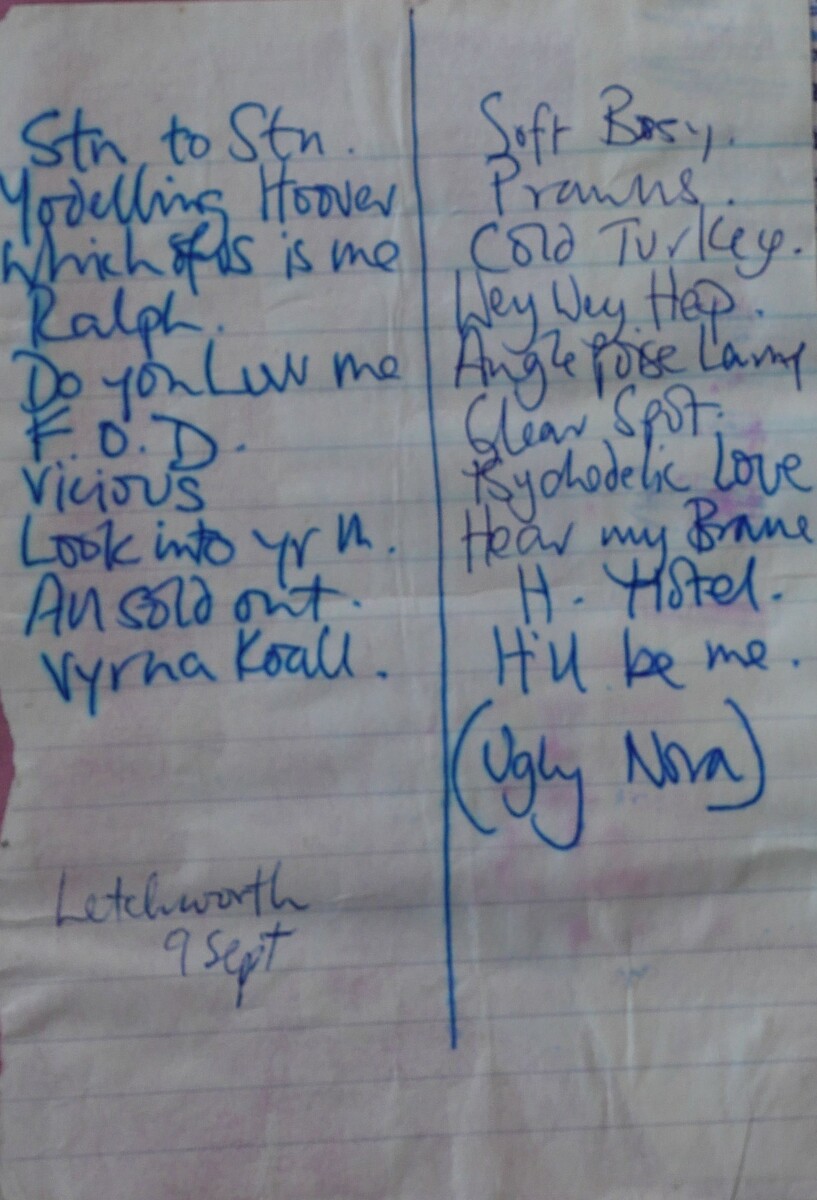 Stn to Stn.
Yodelling Hoover
Which of us is me
Ralph.
Do you Luv me
F.O.D.
Vicious
Look into yr M.
All sold out.
Vyrna Knall.
Letchworth
9 Sept
Soft Boys.
Prawns.
Cold Turkey.
Wey Wey Hep.
Anglepoise Lamp
Clear Spot.
Psychodelic Love
Hear my Brane
H. Hotel.
It'll be me.
(Ugly Nora)